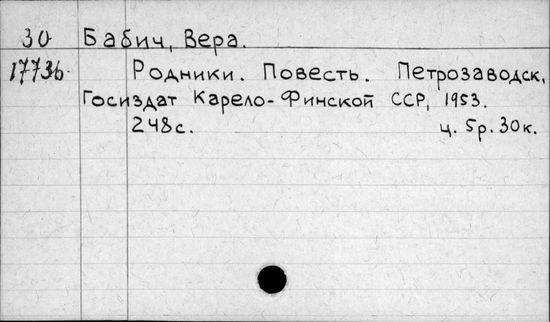 30 Бабич, Вера.
1773б Родники. Повесть. Петрозаводск,
Госиздат Карело-Финской ССР, 1953.
248с. ц. 5р. 30к.